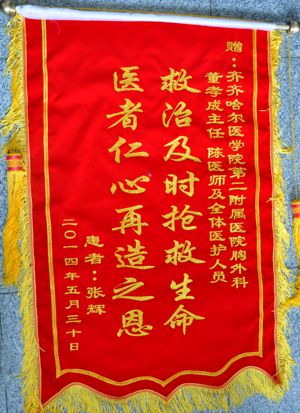 赠：齐齐哈尔医学院第二附属医院胸外科
董孝成主任 陈医师及全体医护人员
救治及时抢救生命
医者仁心再造之恩
患者：张辉
二〇一四年五月三十日